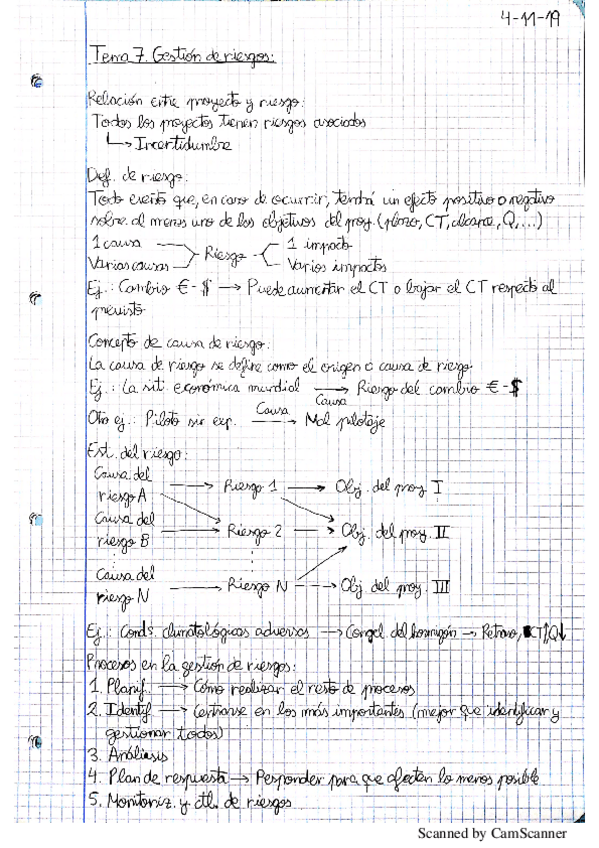 4-11-19
Tema 7. Gestión de riesgos:
Relación entre proyecto y riesgo:
Todos los proyectos tienen riesgos asociados
↳ Incertidumbre
Def. de riesgo:
Todo evento que, en caso de ocurrir, tendrá un efecto positivo o negativo
sobre al menos uno de los objetivos del proy. (plazo, CT, alcance, Q,...)
1 causa Riesgo 1 impacto
Varias causas Varios impactos
Ej.: Cambio €-$ → Puede aumentar el CT o bajar el CT respecto al
previsto
Concepto de causa de riesgo:
La causa de riesgo se define como el origen o causa de riesgo
Ej.: La sit. económica mundial → Causa Riesgo del cambio €-$
Otro ej.: Piloto sin exp. Causa → Mal pilotaje
Est. del riesgo:
Causa del riesgo A → Riesgo 1 → Obj. del proy. I
Causa del riesgo B → Riesgo 2 → Obj. del proy. II
Causa del riesgo N → Riesgo N → Obj. del proy. III
Ej.: Conds. climatológicas adversas → Congel. del hormigón → Retraso, CT↑Q↓
Procesos en la gestión de riesgos:
1. Planif. → Cómo realizar el resto de procesos
2. Identif → Centrarse en los más importantes (mejor que identificar y
gestionar todos)
3. Análisis
4. Plan de respuesta → Responder para que afecten lo menos posible
5. Monitoriz. y ctl. de riesgos
Scanned by CamScanner